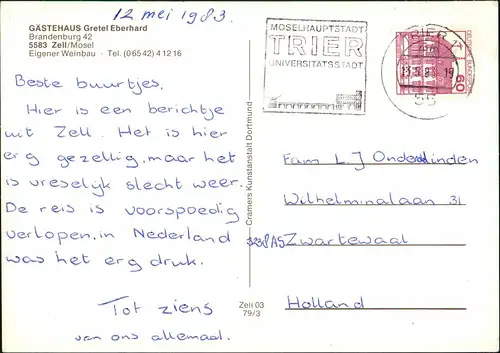 12 mei 1983.
GÄSTEHAUS Gretel Eberhard
Brandenburg 42
5583 Zell/Mosel
Eigener Weinbau · Tel. (06542) 41216
Beste buurtjes.
Hier is een berichtje
uit Zell. Het is hier
erg gezellig, maar het
is vreselijk slecht weer.
De reis is voorspoedig
verlopen, in Nederland
was het erg druk.
Tot ziens
van ons allemaal.
Cramers Kunstanstalt Dortmund
Zell 03
79/3
MOSELHAUPTSTADT
TRIER
UNIVERSITÄTSSTADT
TRIER
60
DEUTSCHE BUNDESPOST
Fam L J Onderlinden
Wilhelminalaan 31
3238 AS Zwartewaal
Holland